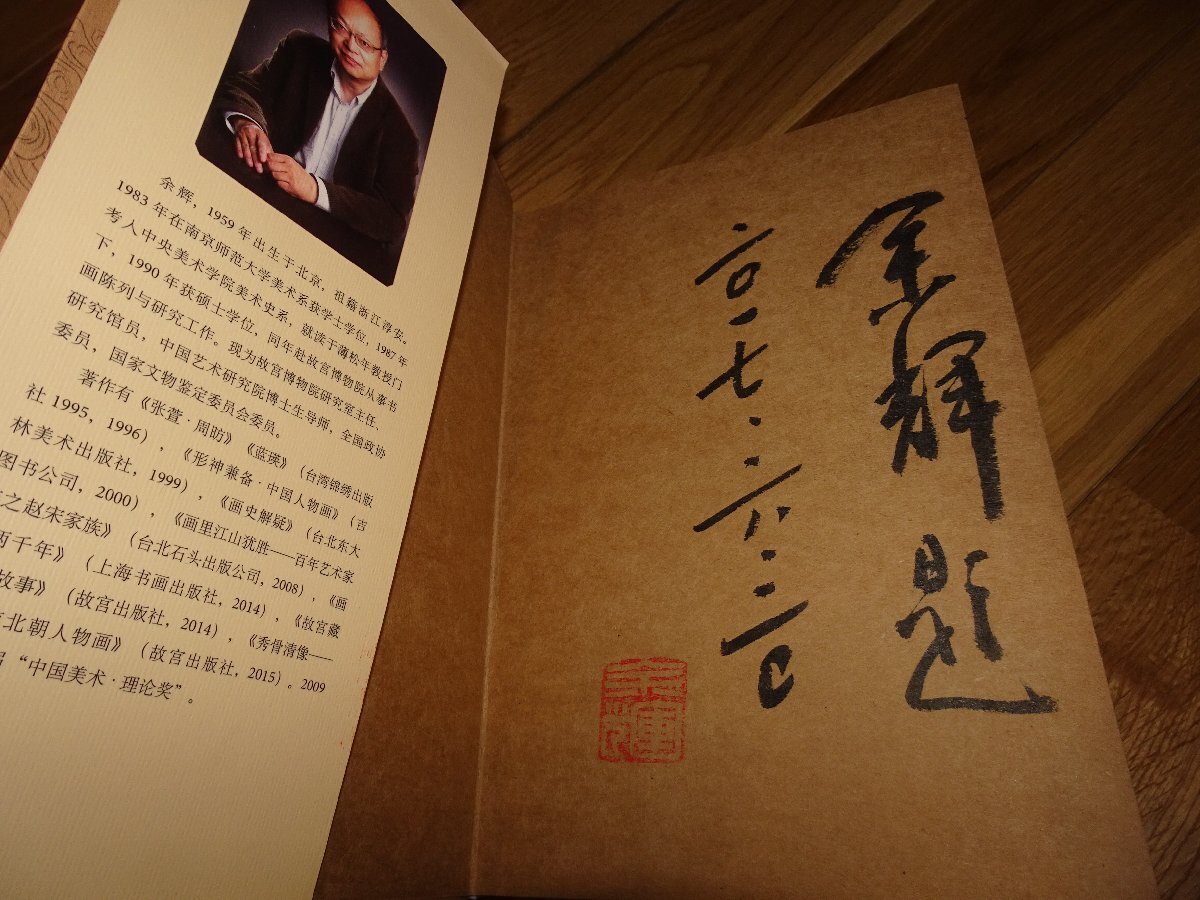 余辉，1959年出生于北京，祖籍浙江淳安。
1983年在南京师范大学美术系获学士学位，1987年
考入中央美术学院美术史系，就读于薄松年教授门
下，1990年获硕士学位，同年赴故宫博物院从事书
画陈列与研究工作。现为故宫博物院研究室主任、
研究馆员，中国艺术研究院博士生导师，全国政协
委员，国家文物鉴定委员会委员。
著作有《张萱·周昉》《蓝瑛》（台湾锦绣出版
社 1995，1996），《形神兼备·中国人物画》（吉
林美术出版社，1999），《画史解疑》（台北东大
图书公司，2000），《画里江山犹胜——百年艺术家
之赵宋家族》（台北石头出版公司，2008），《画
两千年》（上海书画出版社，2014），《故宫藏
故事》（故宫出版社，2014），《秀骨清像——
北朝人物画》（故宫出版社，2015）。2009
“中国美术·理论奖”。
余輝題
二〇一七·六·二〇
余輝